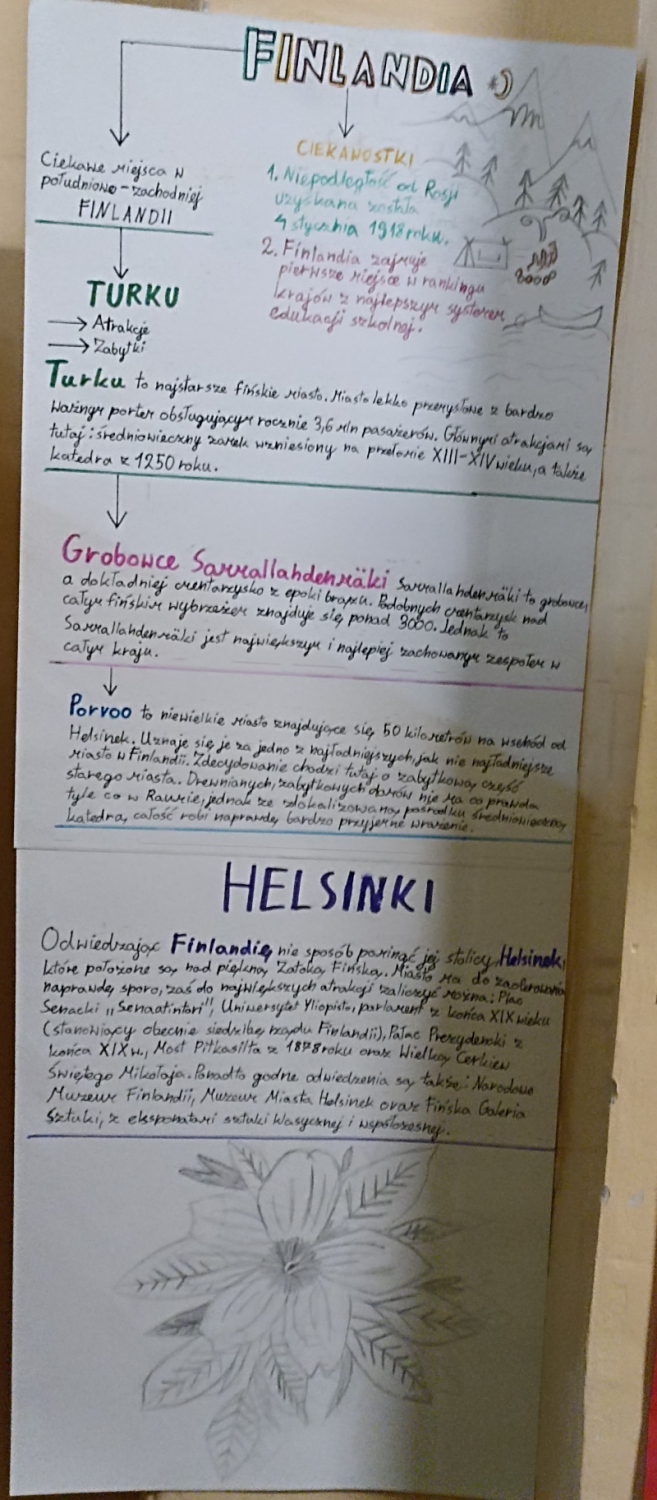 FINLANDIA
Ciekawe miejsca w
południowo-zachodniej
FINLANDII
CIEKAWOSTKI
1. Niepodległość od Rosji
uzyskana została
4 stycznia 1918 roku.
2. Finlandia zajmuje
pierwsze miejsce w rankingu
krajów z najlepszym systemem
edukacji szkolnej.
TURKU
→ Atrakcje
→ Zabytki
Turku to najstarsze fińskie miasto. Miasto lekko przemysłowe z bardzo
ważnym portem obsługującym rocznie 3,6 mln pasażerów. Głównymi atrakcjami są
tutaj: średniowieczny zamek wzniesiony na przełomie XIII-XIV wieku, a także
katedra z 1250 roku.
Grobowce Sammallahdenmäki Sammallahdenmäki to grobowce,
a dokładniej cmentarzysko z epoki brązu. Podobnych cmentarzysk nad
całym fińskim wybrzeżem znajduje się ponad 3000. Jednak to
Sammallahdenmäki jest największym i najlepiej zachowanym zespołem w
całym kraju.
Porvoo to niewielkie miasto znajdujące się 50 kilometrów na wschód od
Helsinek. Uznaje się je za jedno z najładniejszych, jak nie najładniejsze
miasto w Finlandii. Zdecydowanie chodzi tutaj o zabytkową część
starego miasta. Drewnianych, zabytkowych domów nie ma co prawda
tyle co w Raumie, jednak ze zlokalizowaną pośrodku średniowieczną
katedrą, całość robi naprawdę bardzo przyjemne wrażenie.
HELSINKI
Odwiedzając Finlandię nie sposób pominąć jej stolicy, Helsinek,
które położone są nad piękną Zatoką Fińską. Miasto ma do zaoferowania
naprawdę sporo, zaś do największych atrakcji zaliczyć można: Plac
Senacki „Senaatintori", Uniwersytet Yliopisto, parlament z końca XIX wieku
(stanowiący obecnie siedzibę rządu Finlandii), Pałac Prezydencki z
końca XIX w., Most Pitkasilta z 1878 roku oraz Wielką Cerkiew
Świętego Mikołaja. Ponadto godne odwiedzenia są także: Narodowe
Muzeum Finlandii, Muzeum Miasta Helsinek oraz Fińska Galeria
Sztuki, z eksponatami sztuki klasycznej i współczesnej.